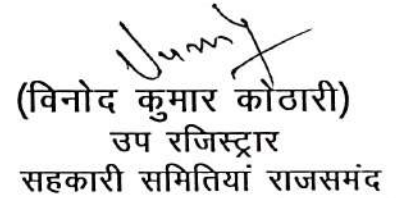 (विनोद कुमार कोठारी)
उप रजिस्ट्रार
सहकारी समितियां राजसमंद